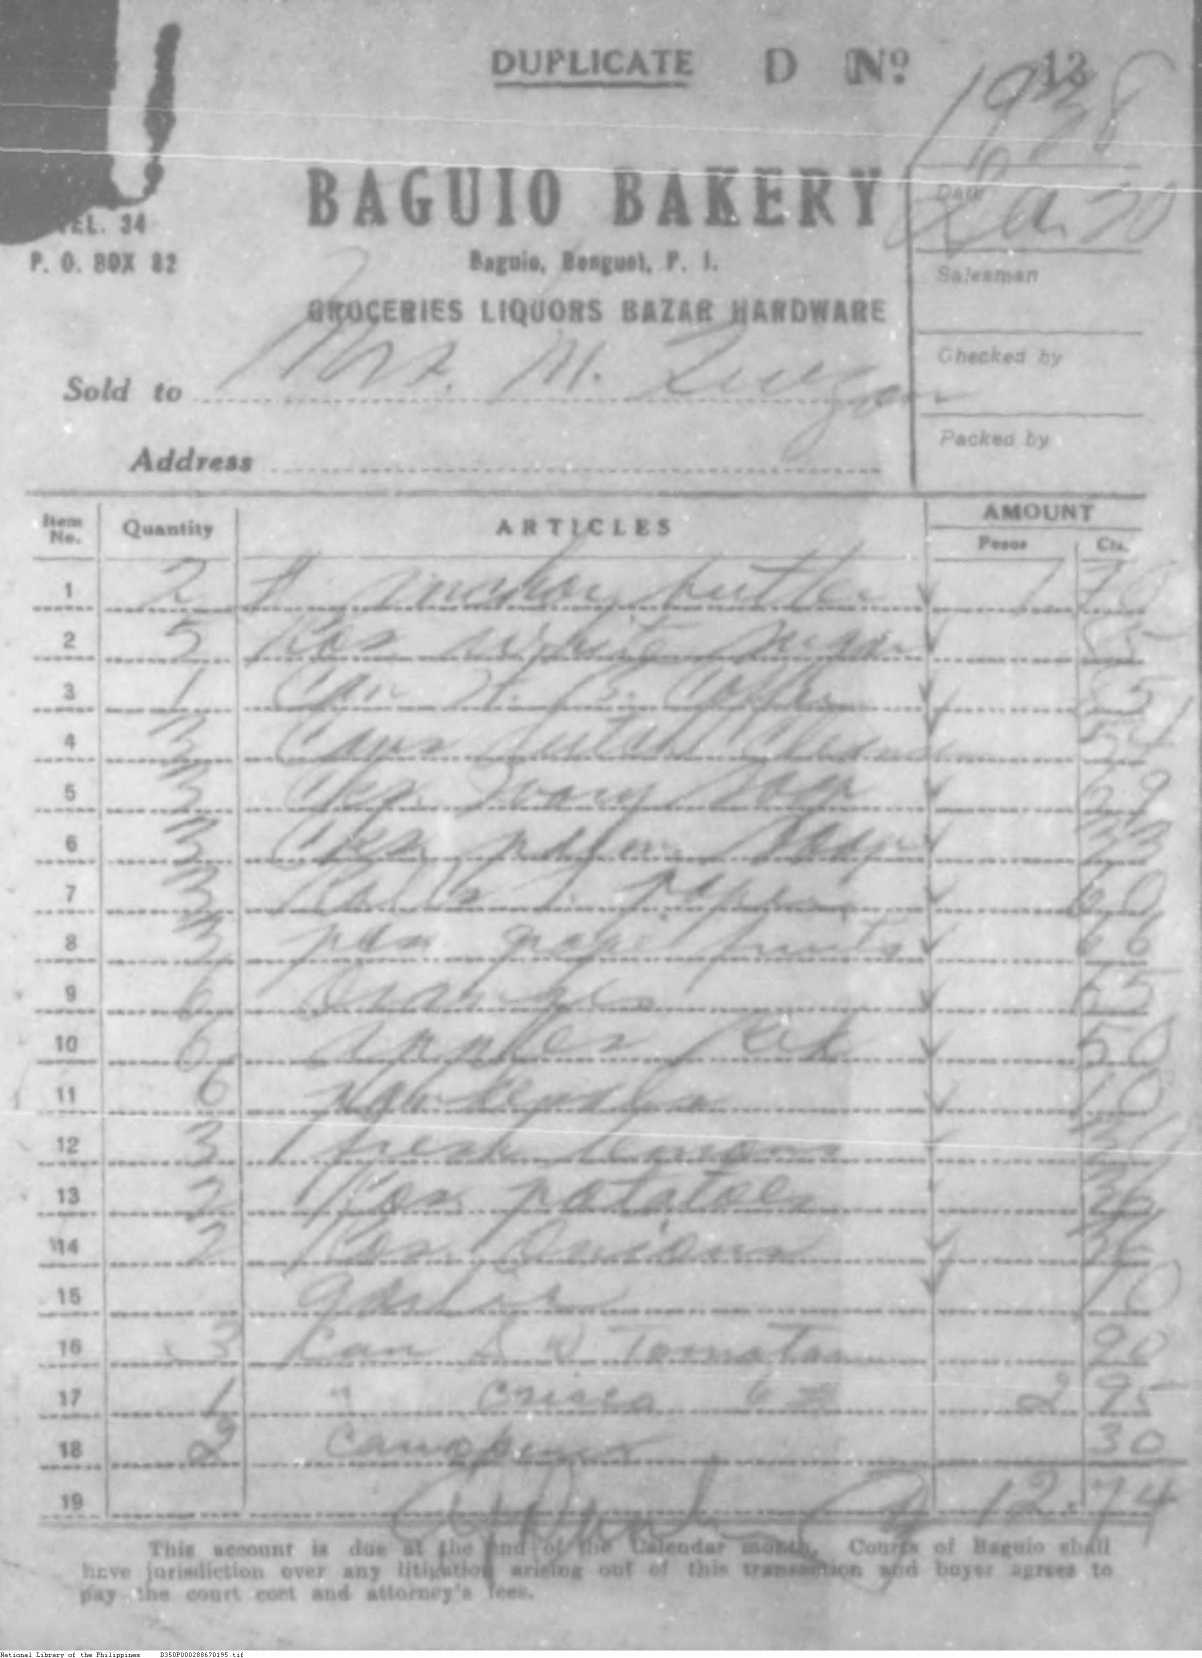 DUPLICATE D No 13
1938
BAGUIO BAKERY
Date
Jan. 20
TEL. 34
P. O. BOX 82
Baguio, Benguet, P. I.
Salesman
GROCERIES LIQUORS BAZAR HARDWARE
Checked by
Sold to Mrs. M. Quezon
Packed by
Address
Item No. Quantity ARTICLES AMOUNT
Pesos Cts.
1 2 anchor butter 1 70
2 5 Kos white sugar 85
3 1 Can H. B. Coffee 85
4 3 Cans dutch Cleanser 54
5 3 Cks Ivory Soap 29
6 3 Cks palm Soap 33
7 3 Rolls T. paper 60
8 3 pcs grape fruits 66
9 6 Oranges
10 6 apples 50
11 6
12 3 fresh lemons
13 2 Kos potatoes 36
14 2 Kos Onions 36
15 Garlic 10
16 3 Can Tomatoes 90
17 1 " Crisco 6 2 95
18 2 30
19 12.74
This account is due at the end of the Calendar month. Courts of Baguio shall
have jurisdiction over any litigation arising out of this transaction and buyer agrees to
pay the court cost and attorney's fees.
National Library of the Philippines D350P000288670195.tif